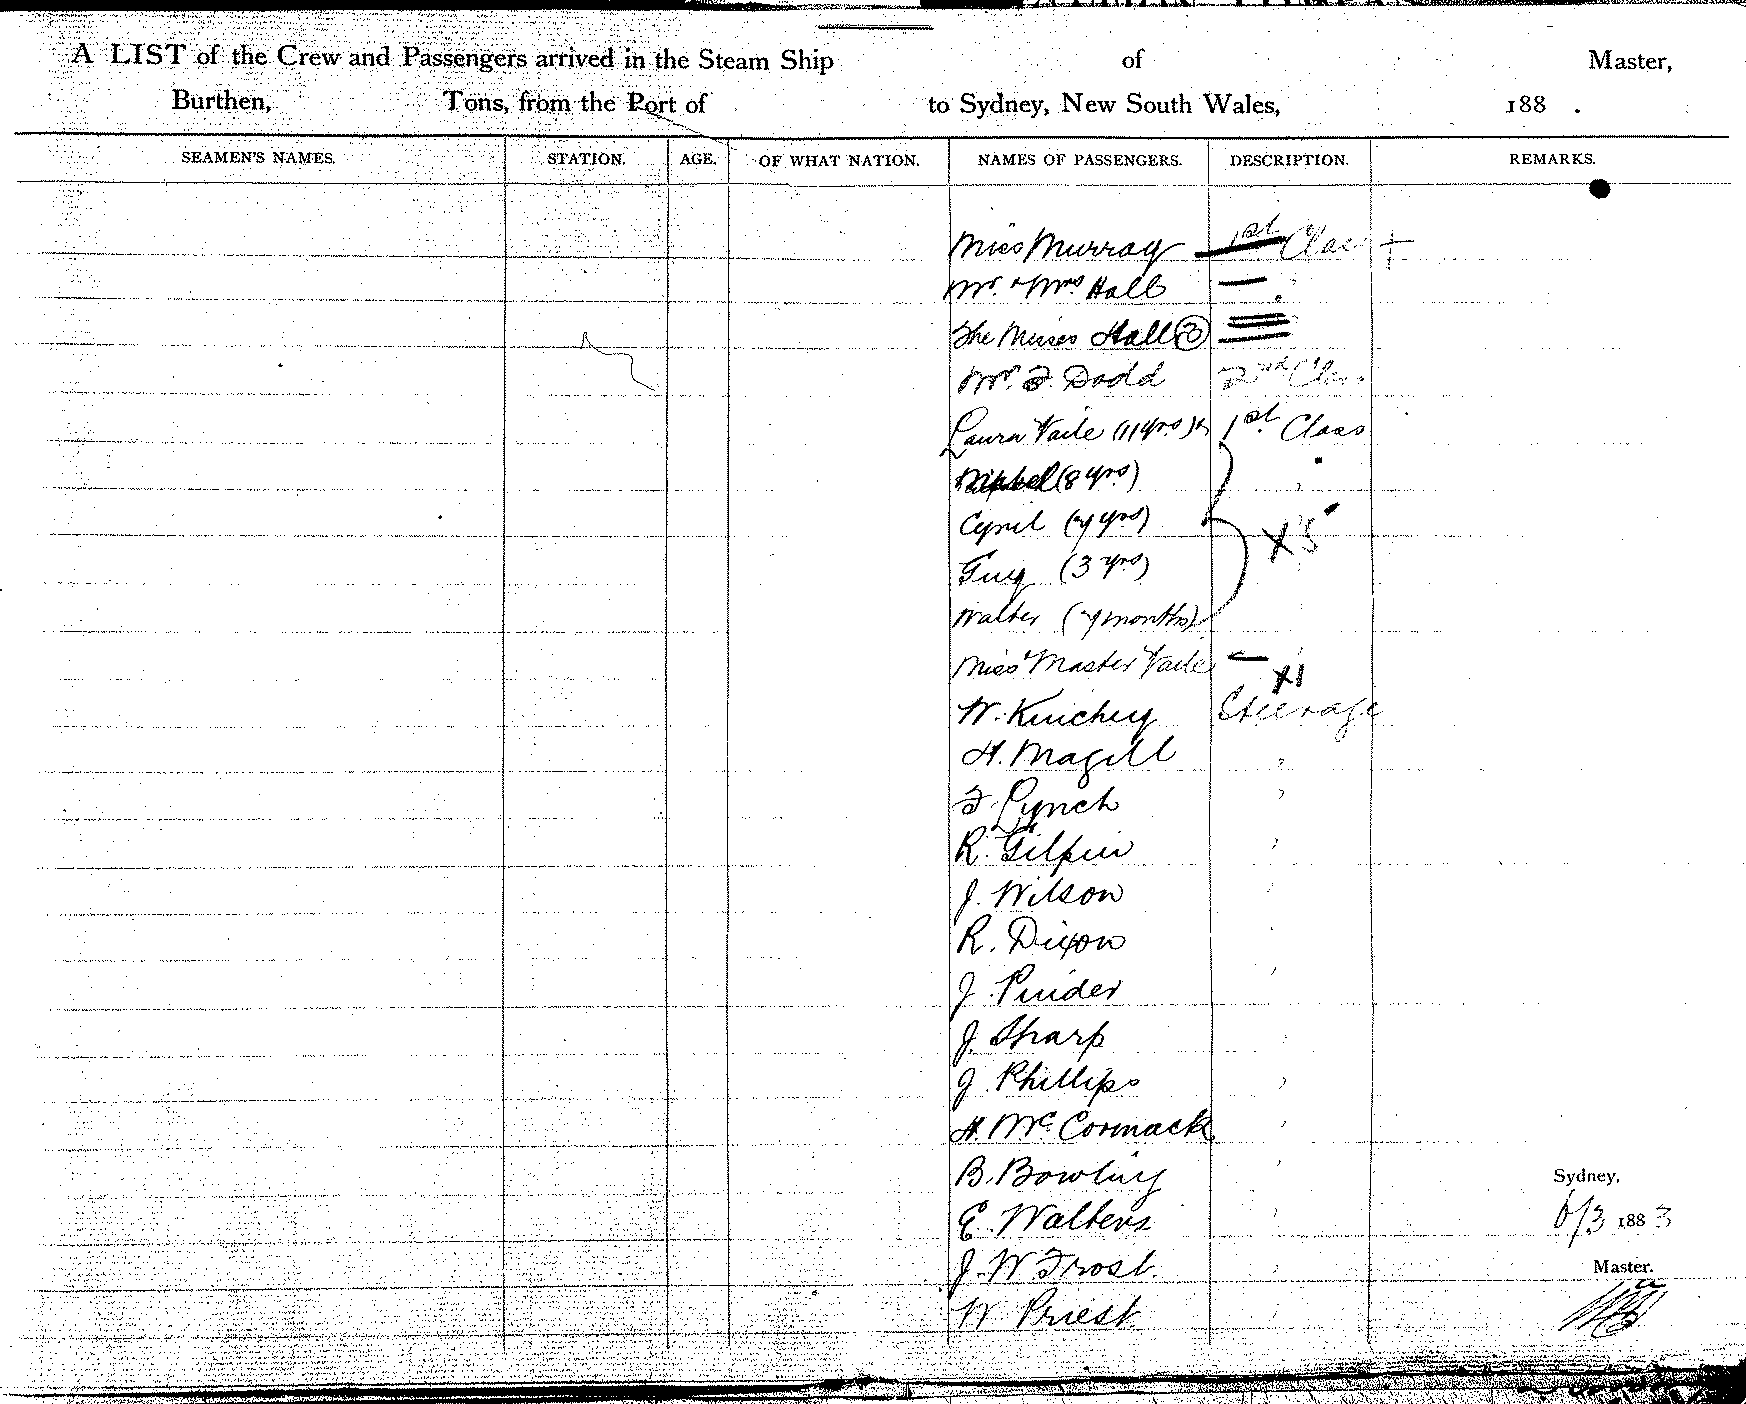 A LIST of the Crew and Passengers arrived in the Steam Ship of Master,
Burthen, Tons, from the Port of to Sydney, New South Wales, 188 .
SEAMEN'S NAMES. STATION. AGE. OF WHAT NATION. NAMES OF PASSENGERS. DESCRIPTION. REMARKS.
Miss Murray 1st Class +
Mr. & Mrs Hall —
The Misses Hall (3)
Mr. F. Dodd 2nd Class
Laura Vaile (11 yrs) 1st Class
(8 yrs)
Cyril (7 yrs)
X5
Guy (3 yrs)
Walter (7 months)
Miss & Master Vaile —
X1
W. Kinchey Steerage
H. Magill "
F. Lynch "
R. Gilpin "
J. Wilson "
R. Dixon "
J. Pinder "
J. Sharp "
J. Phillips "
H. McCormack "
B. Bowling "
Sydney,
E. Walters "
6/3 1883
J. W Frost. "
Master.
W Priest "